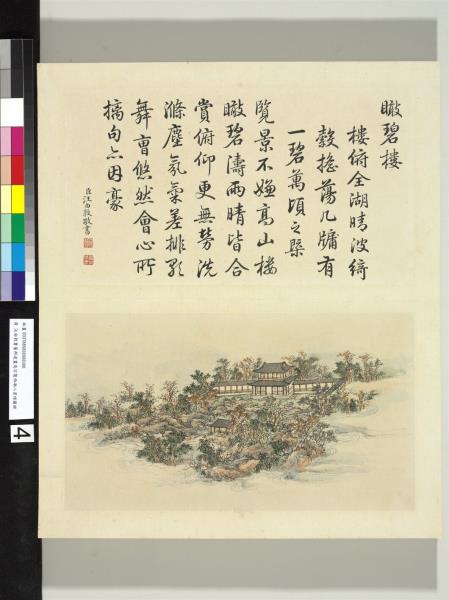 瞰碧樓
樓俯全湖晴波綺
縠搖蕩几牖有
一碧萬頃之槩
覽景不嫌高山樓
瞰碧濤雨晴皆合
賞俯仰更無勞洗
滌塵氛氣差排歌
舞曹悠然會心所
摛句亦因豪
臣汪由敦敬書
4